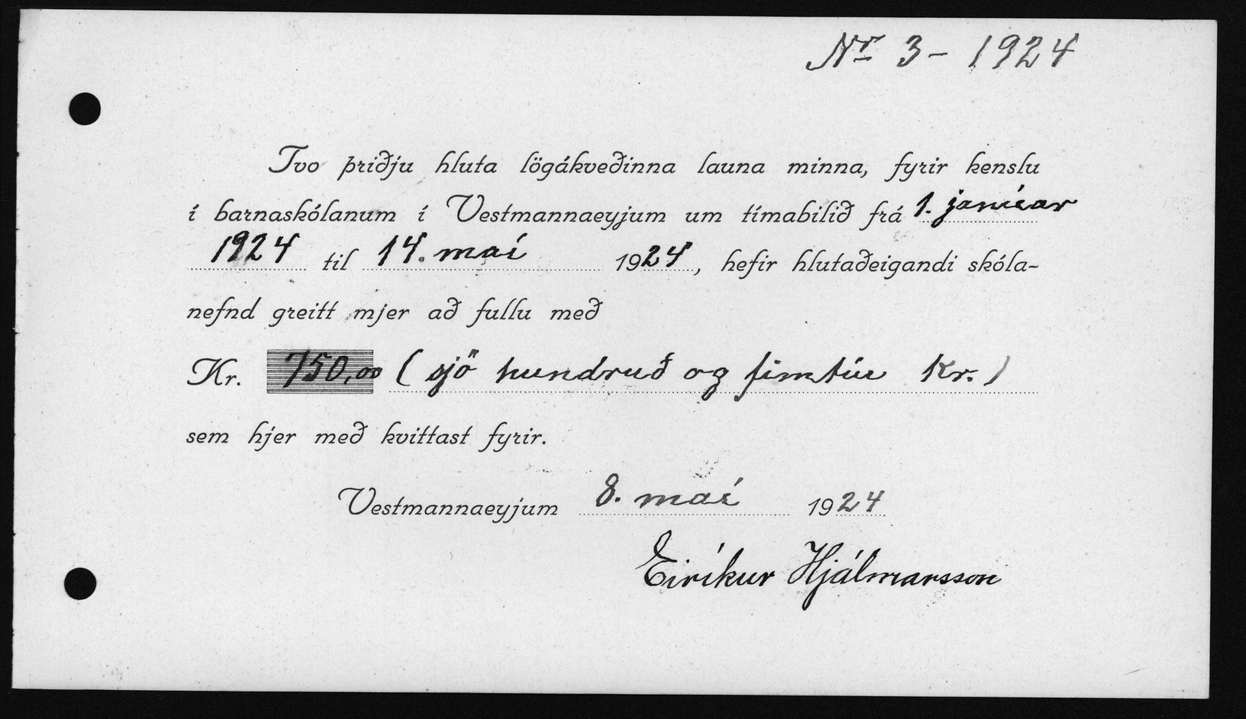 Nr 3 - 1924
Tvo þriðju hluta lögákveðinna launa minna, fyrir kenslu
í barnaskólanum í Vestmannaeyjum um tímabilið frá 1. janúar
1924 til 14. maí 1924, hefir hlutaðeigandi skóla-
nefnd greitt mjer að fullu með
Kr. 750,00 ( sjö hundruð og fimtíu Kr. )
sem hjer með kvittast fyrir.
Vestmannaeyjum 8. maí 1924
Eiríkur Hjálmarsson